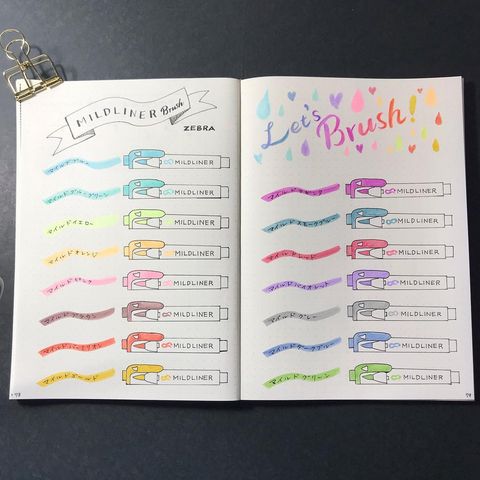 MILDLINER Brush
ZEBRA
マイルドブルー MILDLINER
マイルドブルーグリーン MILDLINER
マイルドイエロー MILDLINER
マイルドオレンジ MILDLINER
マイルドピンク MILDLINER
マイルドブラウン MILDLINER
マイルドバーミリオン MILDLINER
マイルドゴールド MILDLINER
Let's Brush!
マイルドマゼンタ MILDLINER
マイルドスモークブルー MILDLINER
マイルドレッド MILDLINER
マイルドバイオレット MILDLINER
マイルドグレー MILDLINER
マイルドダークブルー MILDLINER
マイルドグリーン MILDLINER